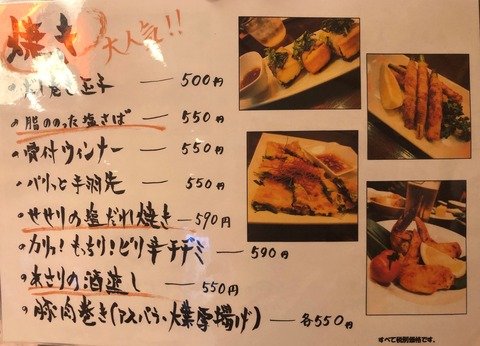 焼き
大人気!!
玉子 — 500円
・脂ののった塩さば — 550円
・骨付ウィンナー — 550円
・パリッと手羽先 — 550円
・せせりの塩だれ焼き — 590円
・カリッ!もっちり!ピリ辛チヂミ — 590円
・あさりの酒蒸し — 550円
・豚肉巻き(アスパラ・大葉厚揚げ) — 各550円
すべて税別価格です。